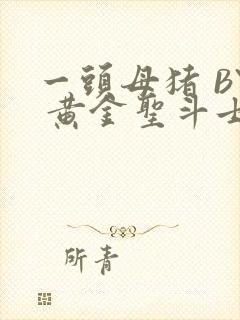 一頭母猪 BY
黄金聖斗士
所青